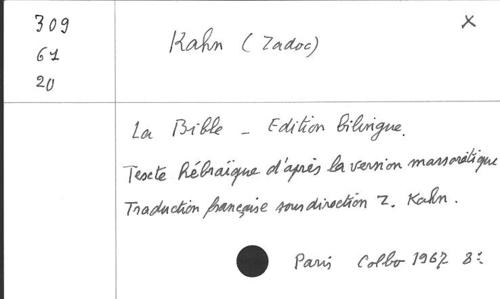 309
61
20
Kahn (Zadoc)
X
La Bible - Edition bilingue.
Texte hébraïque d'après la version massorétique
Traduction française sous direction Z. Kahn.
Paris Colbo 1967 8º